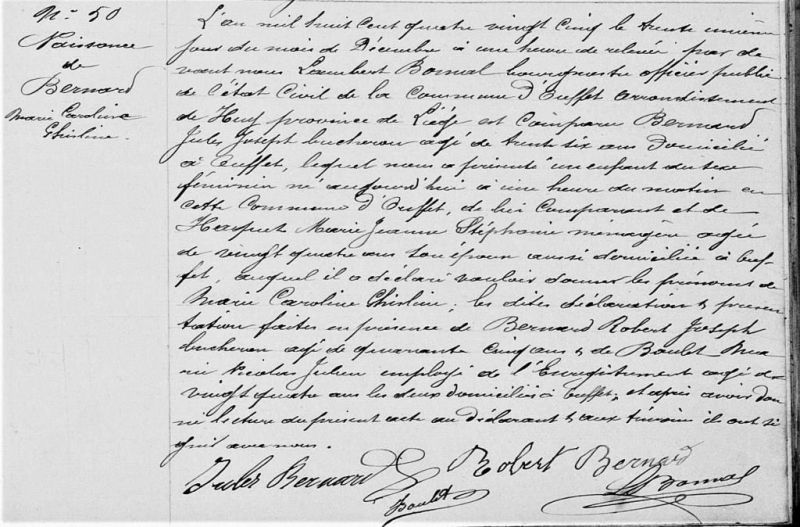 N° 50
Naissance
de
Bernard
Marie Caroline
Ghisline.
L'an mil huit cent quatre vingt cinq le trente unième
jour du mois de Décembre à une heure de relevée par de
vant nous Lambert Bomal bourgmestre officier public
de l'état Civil de la Commune d'Ouffet arrondissement
de Huy province de Liége est comparu Bernard
Jules Joseph bucheron agé de trente six ans domicilié
à Ouffet, lequel nous a présenté un enfant du sexe
féminin né aujourd'hui à une heure du matin en
cette Commune d'Ouffet, de lui Comparant et de
Marie Jeanne Stéphanie menagère agée
de vingt quatre ans son épouse aussi domiciliée à Ouf-
fet, auquel il a déclaré vouloir donner les prénoms de
Marie Caroline Ghisline; les dites déclaration & présen-
tation faites en présence de Bernard Robert Joseph
bucheron agé de quarante cinq ans & de Boulet Ma
rie Nicolas Julien employé de l'Enregistrement agé de
vingt quatre ans les deux domiciliés à Ouffet, et après avoir don
né lecture du présent acte au déclarant & aux témoins ils ont si
gné avec nous.
Jules Bernard
Robert Bernard
Boulet
L Bomal